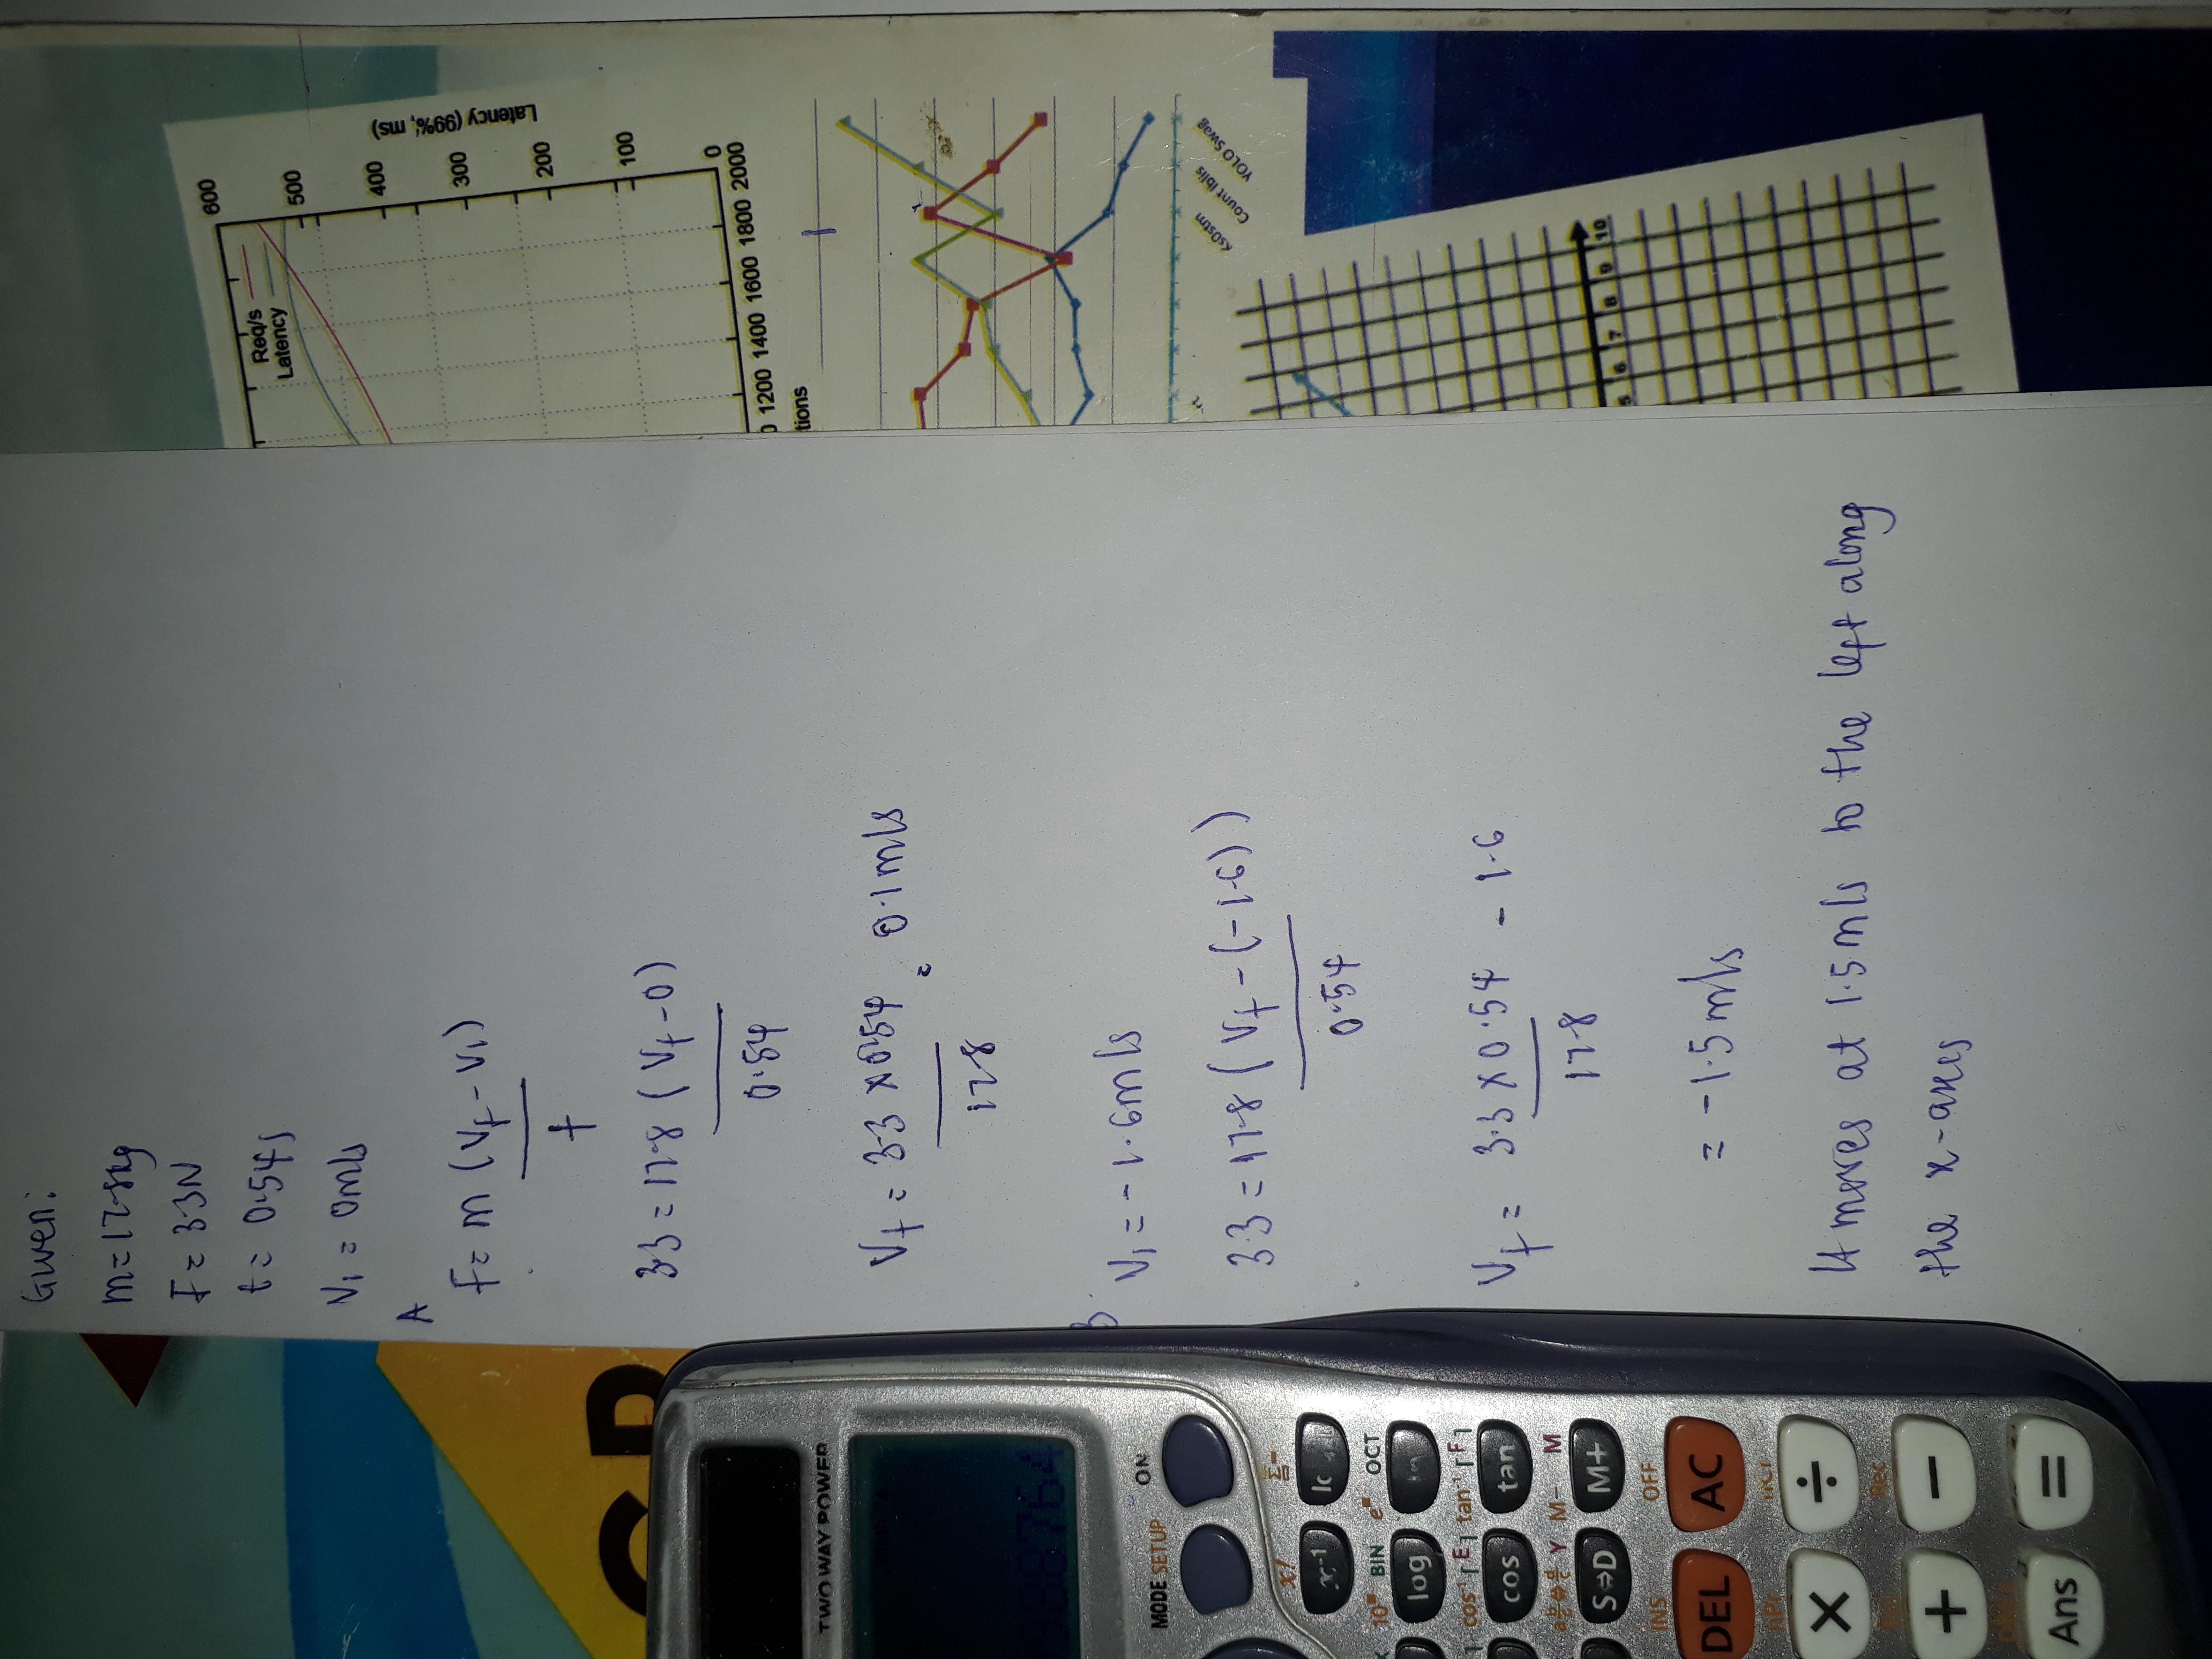 Given:
m = 17.8kg
F = 3.3N
t = 0.54s
V₁ = 0m/s
A
F = m (Vf - V₁)
t
3.3 = 17.8 (Vf - 0)
0.54
Vf = 3.3 x 0.54 = 0.1m/s
17.8
B
V₁ = -1.6m/s
3.3 = 17.8 (Vf - (-1.6))
0.54
Vf = 3.3 x 0.54 - 1.6
17.8
= -1.5m/s
It moves at 1.5m/s to the left along
the x-axes
Latency (99%, ms)
600
500
400
300
200
100
0
Req/s
Latency
1200 1400 1600 1800 2000
tions
YOLO Swag
Count Iblis
Ks0stm
5 6 7 8 9 10
TWO WAY POWER
MODE SETUP ON
x!
x⁻¹
BIN eˣ OCT
log
cos⁻¹ tan⁻¹
cos tan
M- M
S⇔D M+
INS OFF
DEL AC
× ÷
Rec
+ −
Ans =